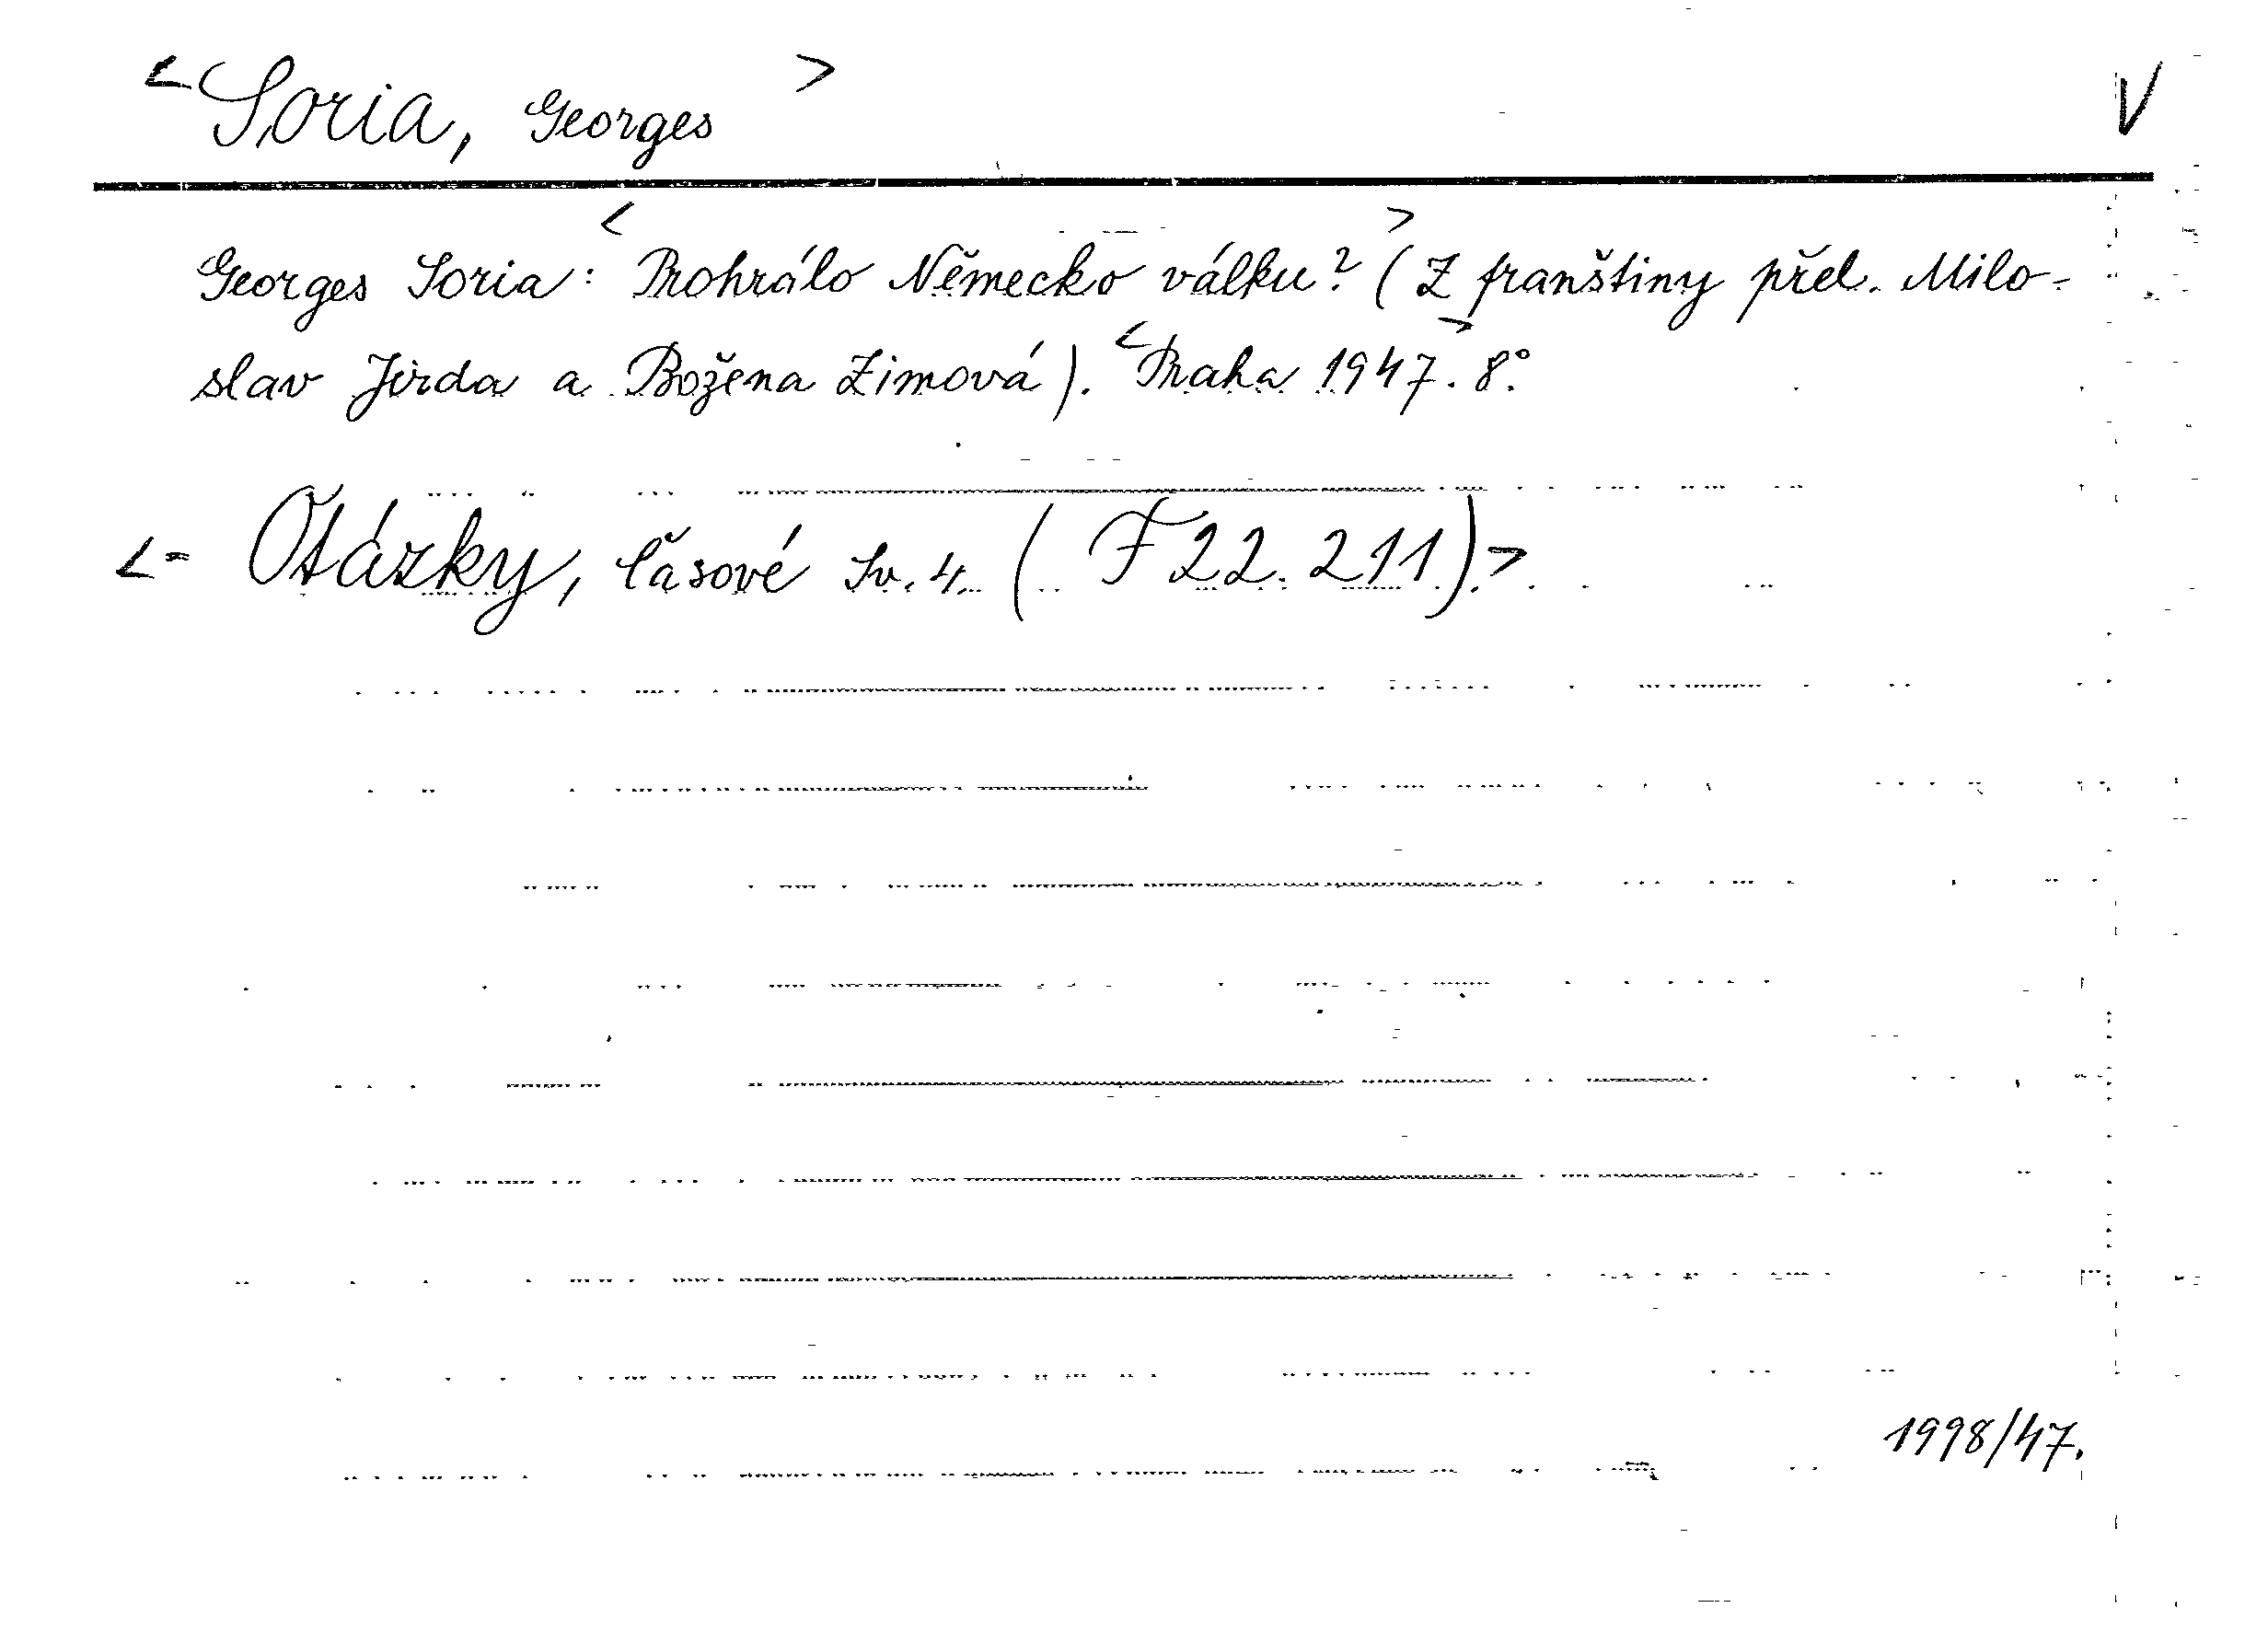 <Soria, Georges> V
Georges Soria: <Prohrálo Německo válku?> (Z franštiny přel. Milo-
slav Jirda a Božena Zimová). <Praha 1947>. 8°.
<= Otázky, časové Sv. 4. (F 22. 211).>
1998/47.